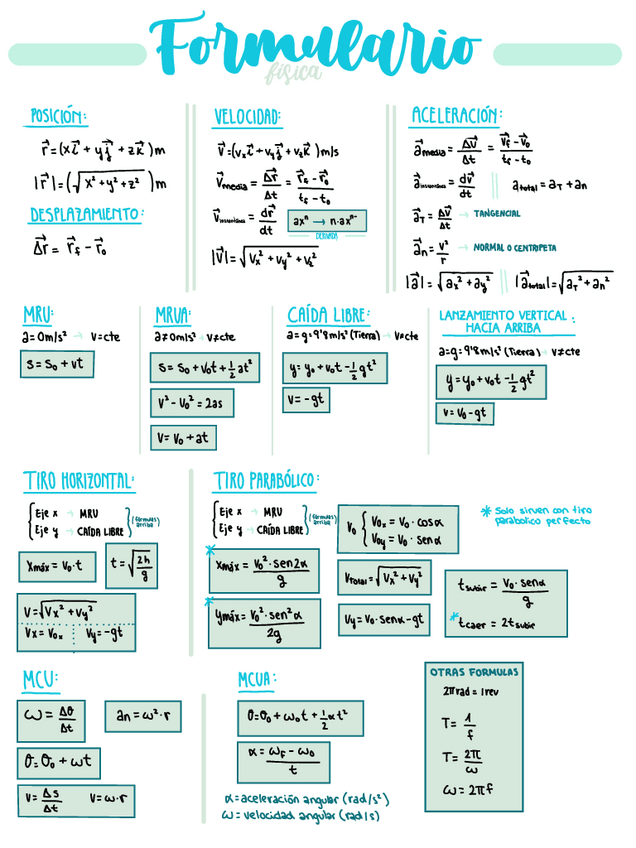 Formulario
física
POSICIÓN:
r⃗=(xi⃗ + yj⃗ + zk⃗)m
|r⃗|=(√x²+y²+z²)m
DESPLAZAMIENTO:
Δr⃗ = r⃗f - r⃗o
VELOCIDAD:
v⃗=(vxi⃗+vyj⃗+vzk⃗)m/s
v⃗media = Δr⃗/Δt = r⃗f - r⃗o/tf - to
v⃗instantánea = dr⃗/dt
axⁿ → n·axⁿ⁻
DERIVADA
|v⃗|=√vx²+vy²+vz²
ACELERACIÓN:
a⃗media = Δv⃗/Δt = v⃗f-v⃗o/tf-to
a⃗instantánea = dv⃗/dt || atotal = aT + an
a⃗T = Δv⃗/Δt → TANGENCIAL
a⃗n = v²/r → NORMAL O CENTRIPETA
|a⃗|=√ax²+ay² | |a⃗total|=√aT²+an²
MRU:
a=0m/s² → v=cte
s=so+vt
MRUA:
a≠0m/s² → v≠cte
s=so+vot+1/2at²
v²-vo²=2as
v=vo+at
CAÍDA LIBRE:
a=g=9'8m/s² (Tierra) → v≠cte
y=yo+vot-1/2gt²
v=-gt
LANZAMIENTO VERTICAL:
HACIA ARRIBA
a=g=9'8m/s² (Tierra) → v≠cte
y=yo+vot-1/2gt²
v=vo-gt
TIRO HORIZONTAL:
Eje x → MRU
Eje y → CAÍDA LIBRE
(formulas arriba)
xmáx=vo·t
t=√2h/g
v=√vx²+vy²
vx=vox
vy=-gt
TIRO PARABÓLICO:
Eje x → MRU
Eje y → CAÍDA LIBRE
(formulas arriba)
vo { vox=vo·cosα
voy=vo·senα
* Solo sirven con tiro
parabolico perfecto
* xmáx=vo²·sen2α/g
vtotal=√vx²+vy²
tsubir=vo·senα/g
* tcaer=2tsubir
* ymáx=vo²·sen²α/2g
vy=vo·senα-gt
MCU:
ω=Δθ/Δt
an=ω²·r
θ=θo+ωt
v=Δs/Δt v=ω·r
MCUA:
θ=θo+ωot+1/2αt²
α=ωf-ωo/t
α=aceleración angular (rad/s²)
ω=velocidad angular (rad/s)
OTRAS FORMULAS
2πrad=1rev
T=1/f
T=2π/ω
ω=2πf